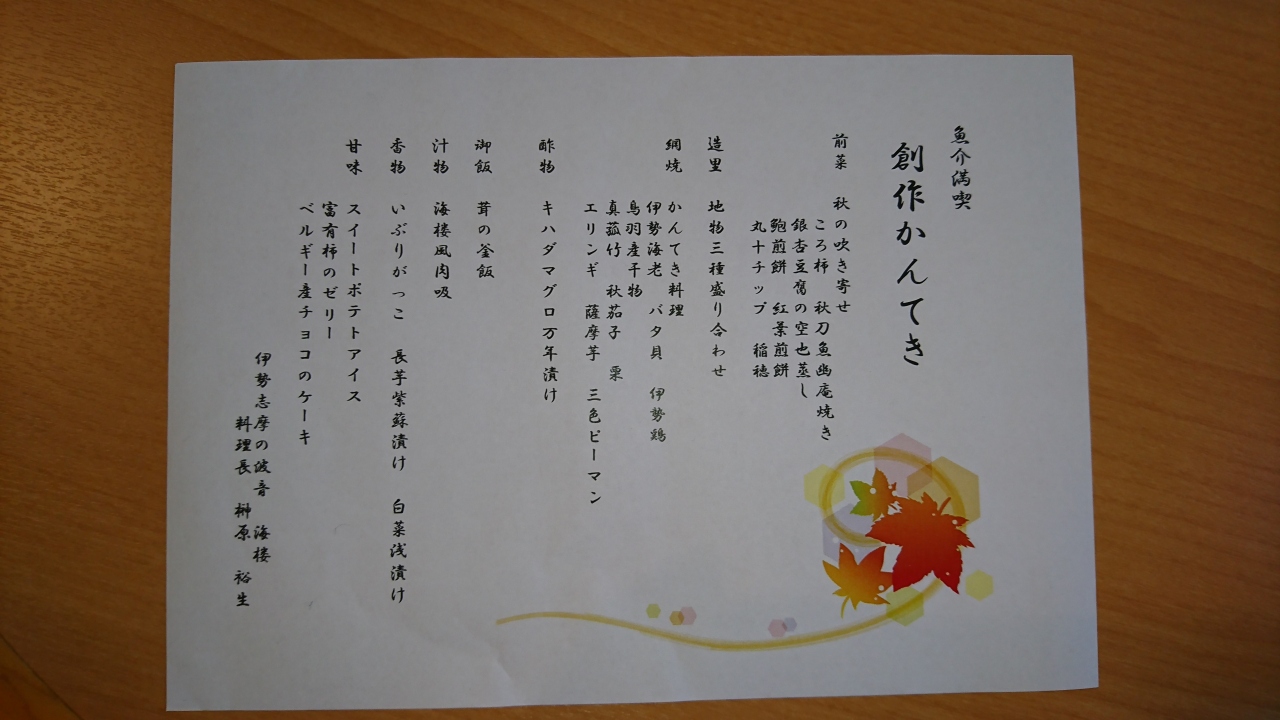 魚介満喫
創作かんてき
前菜 秋の吹き寄せ
ころ柿 秋刀魚幽庵焼き
銀杏豆腐の空也蒸し
鮑煎餅 紅葉煎餅
丸十チップ 稲穂
造里 地物三種盛り合わせ
網焼 かんてき料理
伊勢海老 バタ貝 伊勢鶏
鳥羽産干物
真菰竹 秋茄子 栗
エリンギ 薩摩芋 三色ピーマン
酢物 キハダマグロ万年漬け
御飯 茸の釜飯
汁物 海楼風肉吸
香物 いぶりがっこ 長芋紫蘇漬け 白菜浅漬け
甘味 スイートポテトアイス
富有柿のゼリー
ベルギー産チョコのケーキ
伊勢志摩の波音 海楼
料理長 榊原 裕生